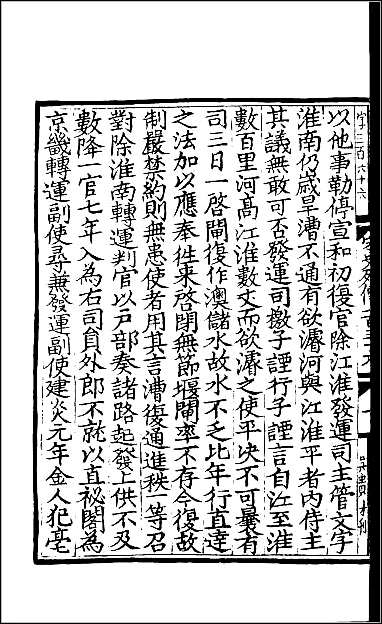 以他事勒停宣和初復官除江淮發運司主管文字
淮南仍歲旱漕不通有欲濬河與江淮平者内侍主
其議無敢可否發運司檄子諲行子諲言自江至淮
數百里河高江淮數丈而欲濬之使平决不可曩有
司三日一啓閘復作澳儲水故水不乏比年行直達
之法加以應奉徃來啓閉無節堰閘率不存今復故
制嚴禁約則無患使者用其言漕復通進秩一等召
對除淮南轉運判官以戸部奏諸路起發上供不及
數降一官七年入為右司員外郎不就以直祕閣為
京畿轉運副使尋兼發運副使建炎元年金人犯亳